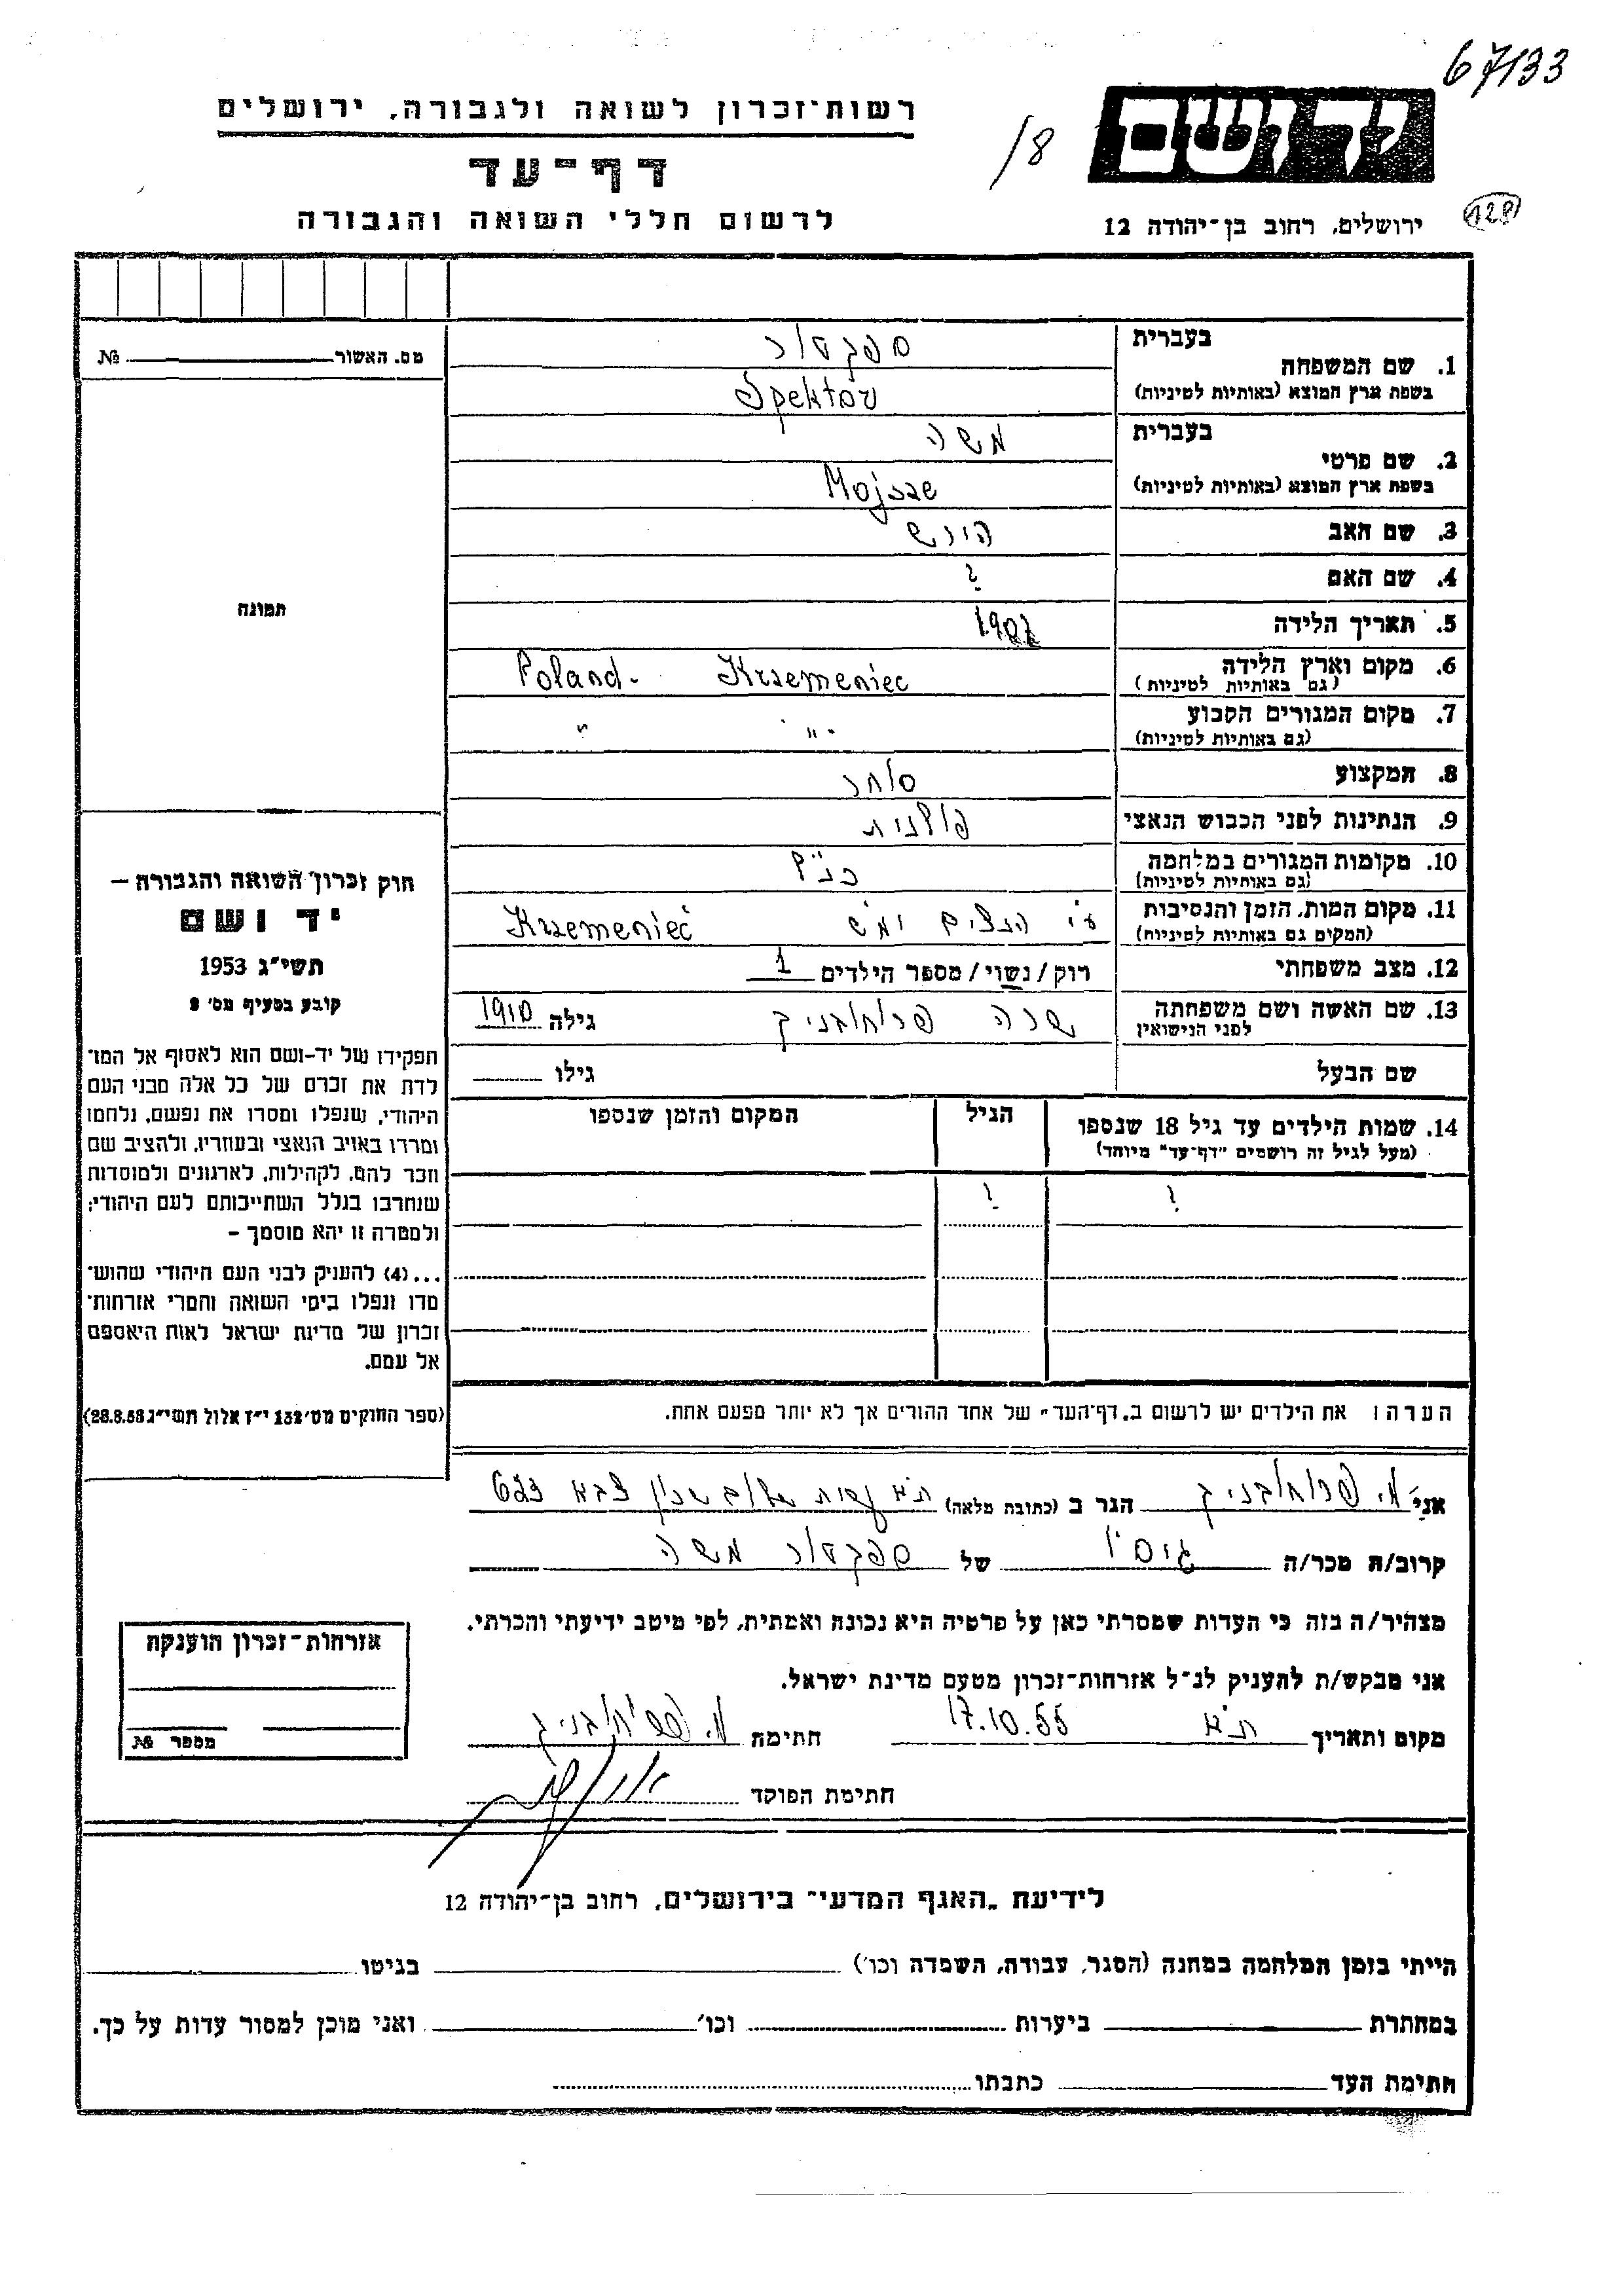 67133
רשות-זכרון לשואה ולגבורה, ירושלים
ידושם
18/
דף-עד
לרשום חללי השואה והגבורה
ירושלים, רחוב בן-יהודה 12
128
בעברית
ספקטור
1. שם המשפחה
בשפת ארץ המוצא (באותיות לטיניות)
Spektor
בעברית
משה
2. שם פרטי
בשפת ארץ המוצא (באותיות לטיניות)
Mojsze
3. שם האב הירש
4. שם האם ?
5. תאריך הלידה
6. מקום וארץ הלידה
(גם באותיות לטיניות)
Poland - Krzemeniec
7. מקום המגורים הקבוע
(גם באותיות לטיניות)
" - "
8. המקצוע סוחר
9. הנתינות לפני הכבוש הנאצי פולנית
10. מקומות המגורים במלחמה
(גם באותיות לטיניות)
כנ"ל
11. מקום המות, הזמן והנסיבות
(המקום גם באותיות לטיניות)
ע"י הנאצים Krzemenieć
12. מצב משפחתי רוק/נשוי/מספר הילדים 1
13. שם האשה ושם משפחתה
לפני הנישואין
שרה פרוחובניק גילה 1910
שם הבעל גילו
14. שמות הילדים עד גיל 18 שנספו
(מעל לגיל זה רושמים "דף-עד" מיוחד)
הגיל
המקום והזמן שנספו
? ?
הערה: את הילדים יש לרשום ב"דף-העד" של אחד ההורים אך לא יותר מפעם אחת.
מס. האשור №
תמונה
חוק זכרון השואה והגבורה —
יד ושם
תשי"ג 1953
קובע בסעיף מס' 2
תפקידו של יד-ושם הוא לאסוף אל המו־
לדת את זכרם של כל אלה מבני העם
היהודי, שנפלו ומסרו את נפשם, נלחמו
ומרדו באויב הנאצי ובעוזריו, ולהציב שם
וזכר להם, לקהילות, לארגונים ולמוסדות
שנחרבו בגלל השתייכותם לעם היהודי;
ולמטרה זו יהא מוסמך —
...(4) להעניק לבני העם היהודי שהוש־
מדו ונפלו בימי השואה והמרי אזרחות־
זכרון של מדינת ישראל לאות היאספם
אל עמם.
(ספר החוקים מס' 132 י"ז אלול תשי"ג 28.8.53)
אני מ. פרוחובניק הגר ב (כתובת מלאה) ת"א
קרוב/ה מכר/ה גיסו של ספקטור משה
מצהיר/ה בזה כי העדות שמסרתי כאן על פרטיה היא נכונה ואמתית, לפי מיטב ידיעתי והכרתי.
אני מבקש/ת להעניק לנ"ל אזרחות-זכרון מטעם מדינת ישראל.
מקום ותאריך ת"א 17.10.55 חתימה מ. פרוחובניק
חתימת הפוקד
אזרחות-זכרון הוענקה
מספר №
לידיעת "האגף המדעי" בירושלים, רחוב בן-יהודה 12
הייתי בזמן המלחמה במחנה (הסגר, עבודה, השמדה וכו') בגיטו
במחתרת ביערות וכו' ואני מוכן למסור עדות על כך.
חתימת העד כתבתו